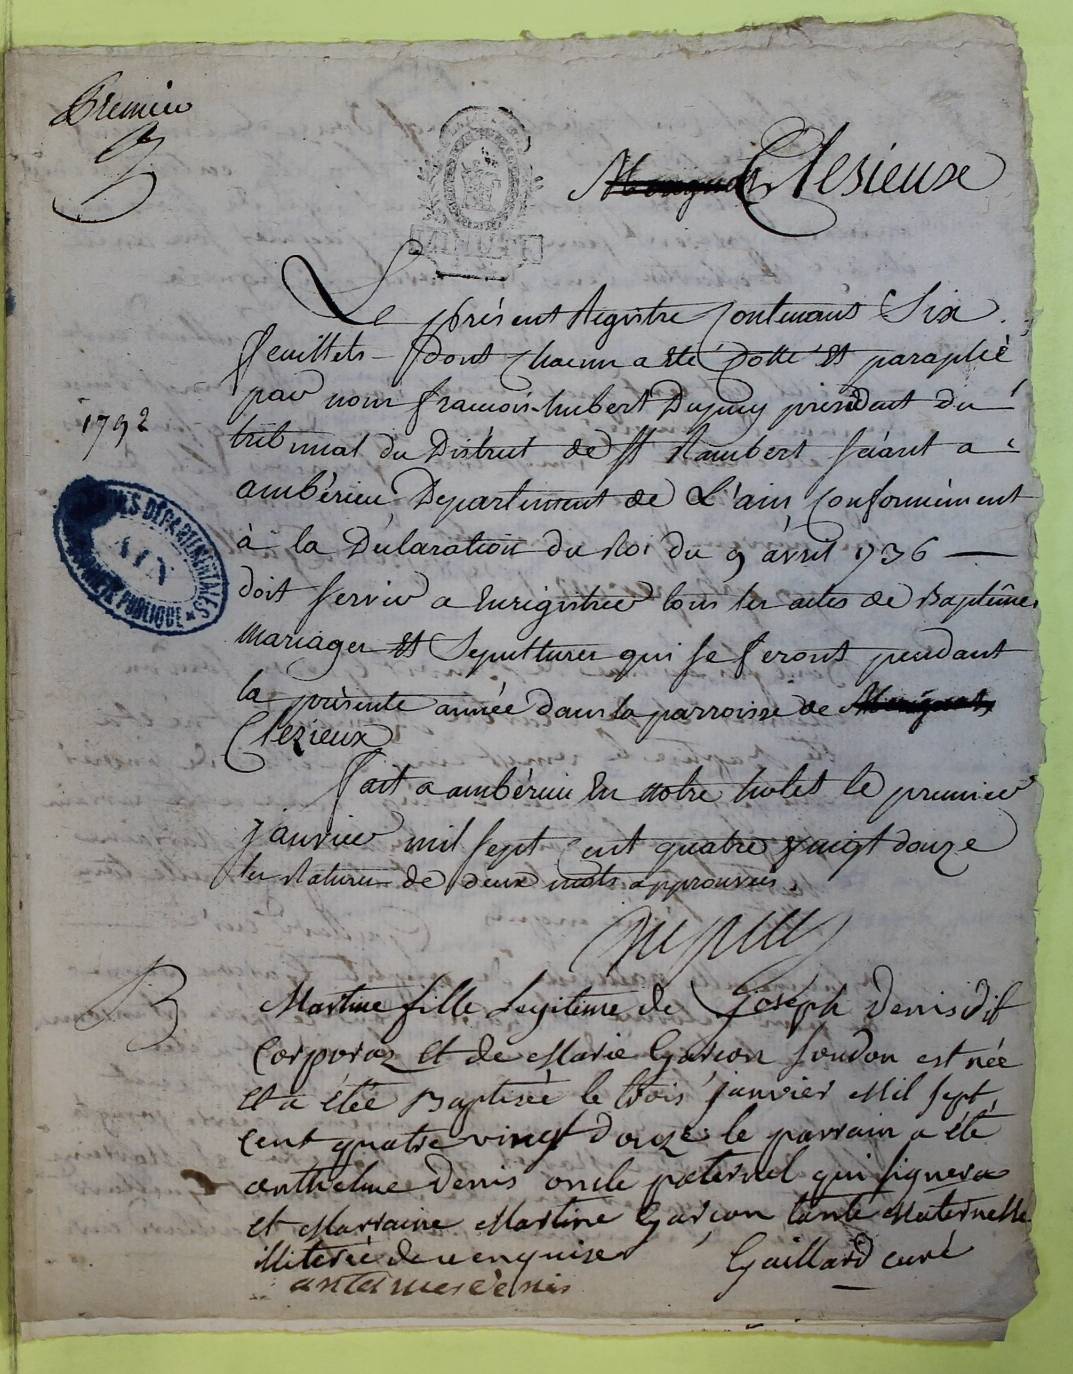 Premier
Clezieux
Le présent Registre Contenant Six
feuillets dont Chacun a été Cotté et paraphé
par nous françois hubert Dupuy président du
1792
tribunal du District de St Rambert séant a
ambérieu Département de L'ain conformément
à la Déclaration du Roi du 9 avril 1736
doit servir a Enrégistrer tous les actes de Baptême
mariages et Sepultures qui se feront pendant
la présente année dans la parroisse de
Clezieux
fait a ambérieu En notre hotel le premier
janvier mil sept Cent quatre vingt douze
les Ratures de deux mots approuvées.
Dupuy
B
Martine fille Legitime de Joseph Denis dit
Corporaz et de Marie Garçon Soudon est née
et a été Baptisée le trois janvier Mil sept
Cent quatre vingt douze le parrain a été
anthelme Denis oncle paternel qui signera
et Marraine Martine Garçon tante Maternelle
illiterée de ce enquise Gaillard curé
antelmes denis
ARCHIVES DEPARTEMENTALES
AIN
PROPRIETE PUBLIQUE